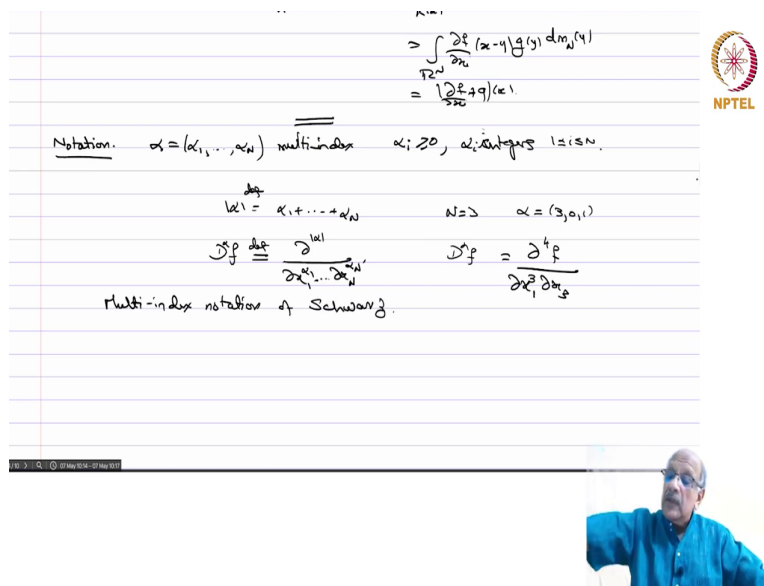 = ∫_{ℝ^N} ∂f/∂x_i (x-y) g(y) dm_N(y)
= (∂f/∂x_i * g)(x).
NPTEL
Notation. α = (α₁, ..., α_N) multi-index α_i ≥ 0, α_i integers 1≤i≤N.
|α| =^{def} α₁ + ... + α_N N=3 α = (3,0,1)
D^α f =^{def} ∂^{|α|} / ∂x₁^{α₁} ... ∂x_N^{α_N} D^α f = ∂⁴f / ∂x₁³ ∂x₃
Multi-index notation of Schwarz.
07 May 10:14 - 07 May 10:17